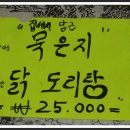 "집에서 담근
묵은지
닭 도리탕
₩ 25.000=